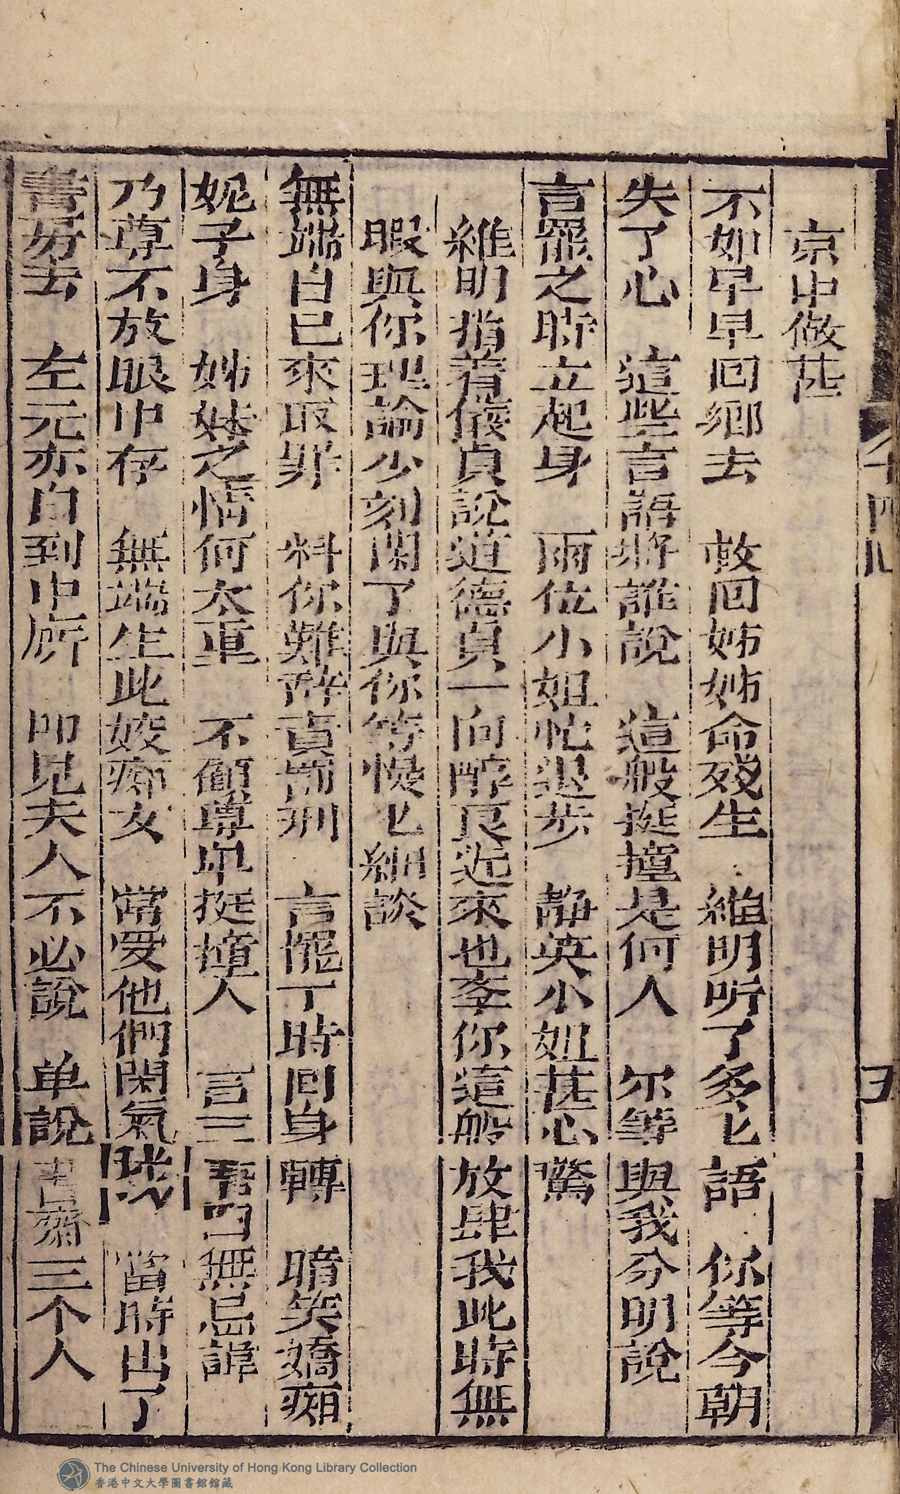 京中做甚
不如早早回鄉去　救回姊姊命殘生　維明听了多匕語　你等今朝
失了心　這些言語將誰說　這般挺撞是何人　尔等與我分明說
言罷之時立起身　兩位小姐忙退步　靜英小姐甚心驚
維明指着儀貞說道德貞一向醇良近來也李你這般放肆我此時無
暇與你理論少刻閑了與你等慢匕細談
無端自已來取罪　料你難辞責罰刑　言罷丁時回身轉　暗笑嬌痴
妮子身　姊妹之情何太重　不顧尊卑挺撞人　言三語四無忌諱
乃尊不放眼中存　無端生此姣痴女　常受他們閑氣　當時出了
書房去　左元亦自到中所　即見夫人不必說　单說書齋三个人
卷十四
五
The Chinese University of Hong Kong Library Collection
香港中文大學圖書館館藏